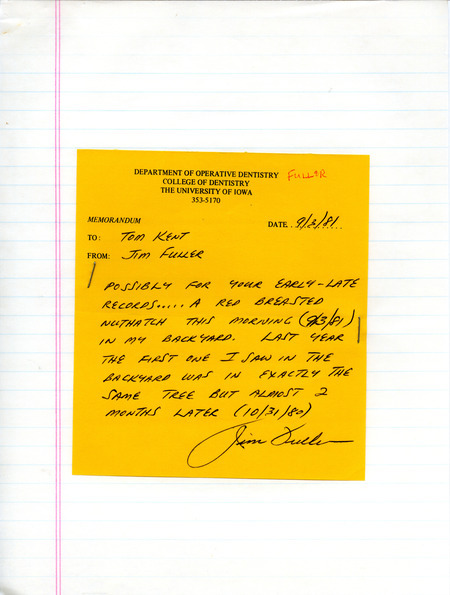 DEPARTMENT OF OPERATIVE DENTISTRY FULLER
COLLEGE OF DENTISTRY
THE UNIVERSITY OF IOWA
353-5170
MEMORANDUM DATE.. 9/3/81
TO: TOM KENT
FROM: JIM FULLER
POSSIBLY FOR YOUR EARLY-LATE
RECORDS..... A RED BREASTED
NUTHATCH THIS MORNING (9/3/81)
IN MY BACKYARD. LAST YEAR
THE FIRST ONE I SAW IN THE
BACKYARD WAS IN EXACTLY THE
SAME TREE BUT ALMOST 2
MONTHS LATER (10/31/80)
Jim Fuller